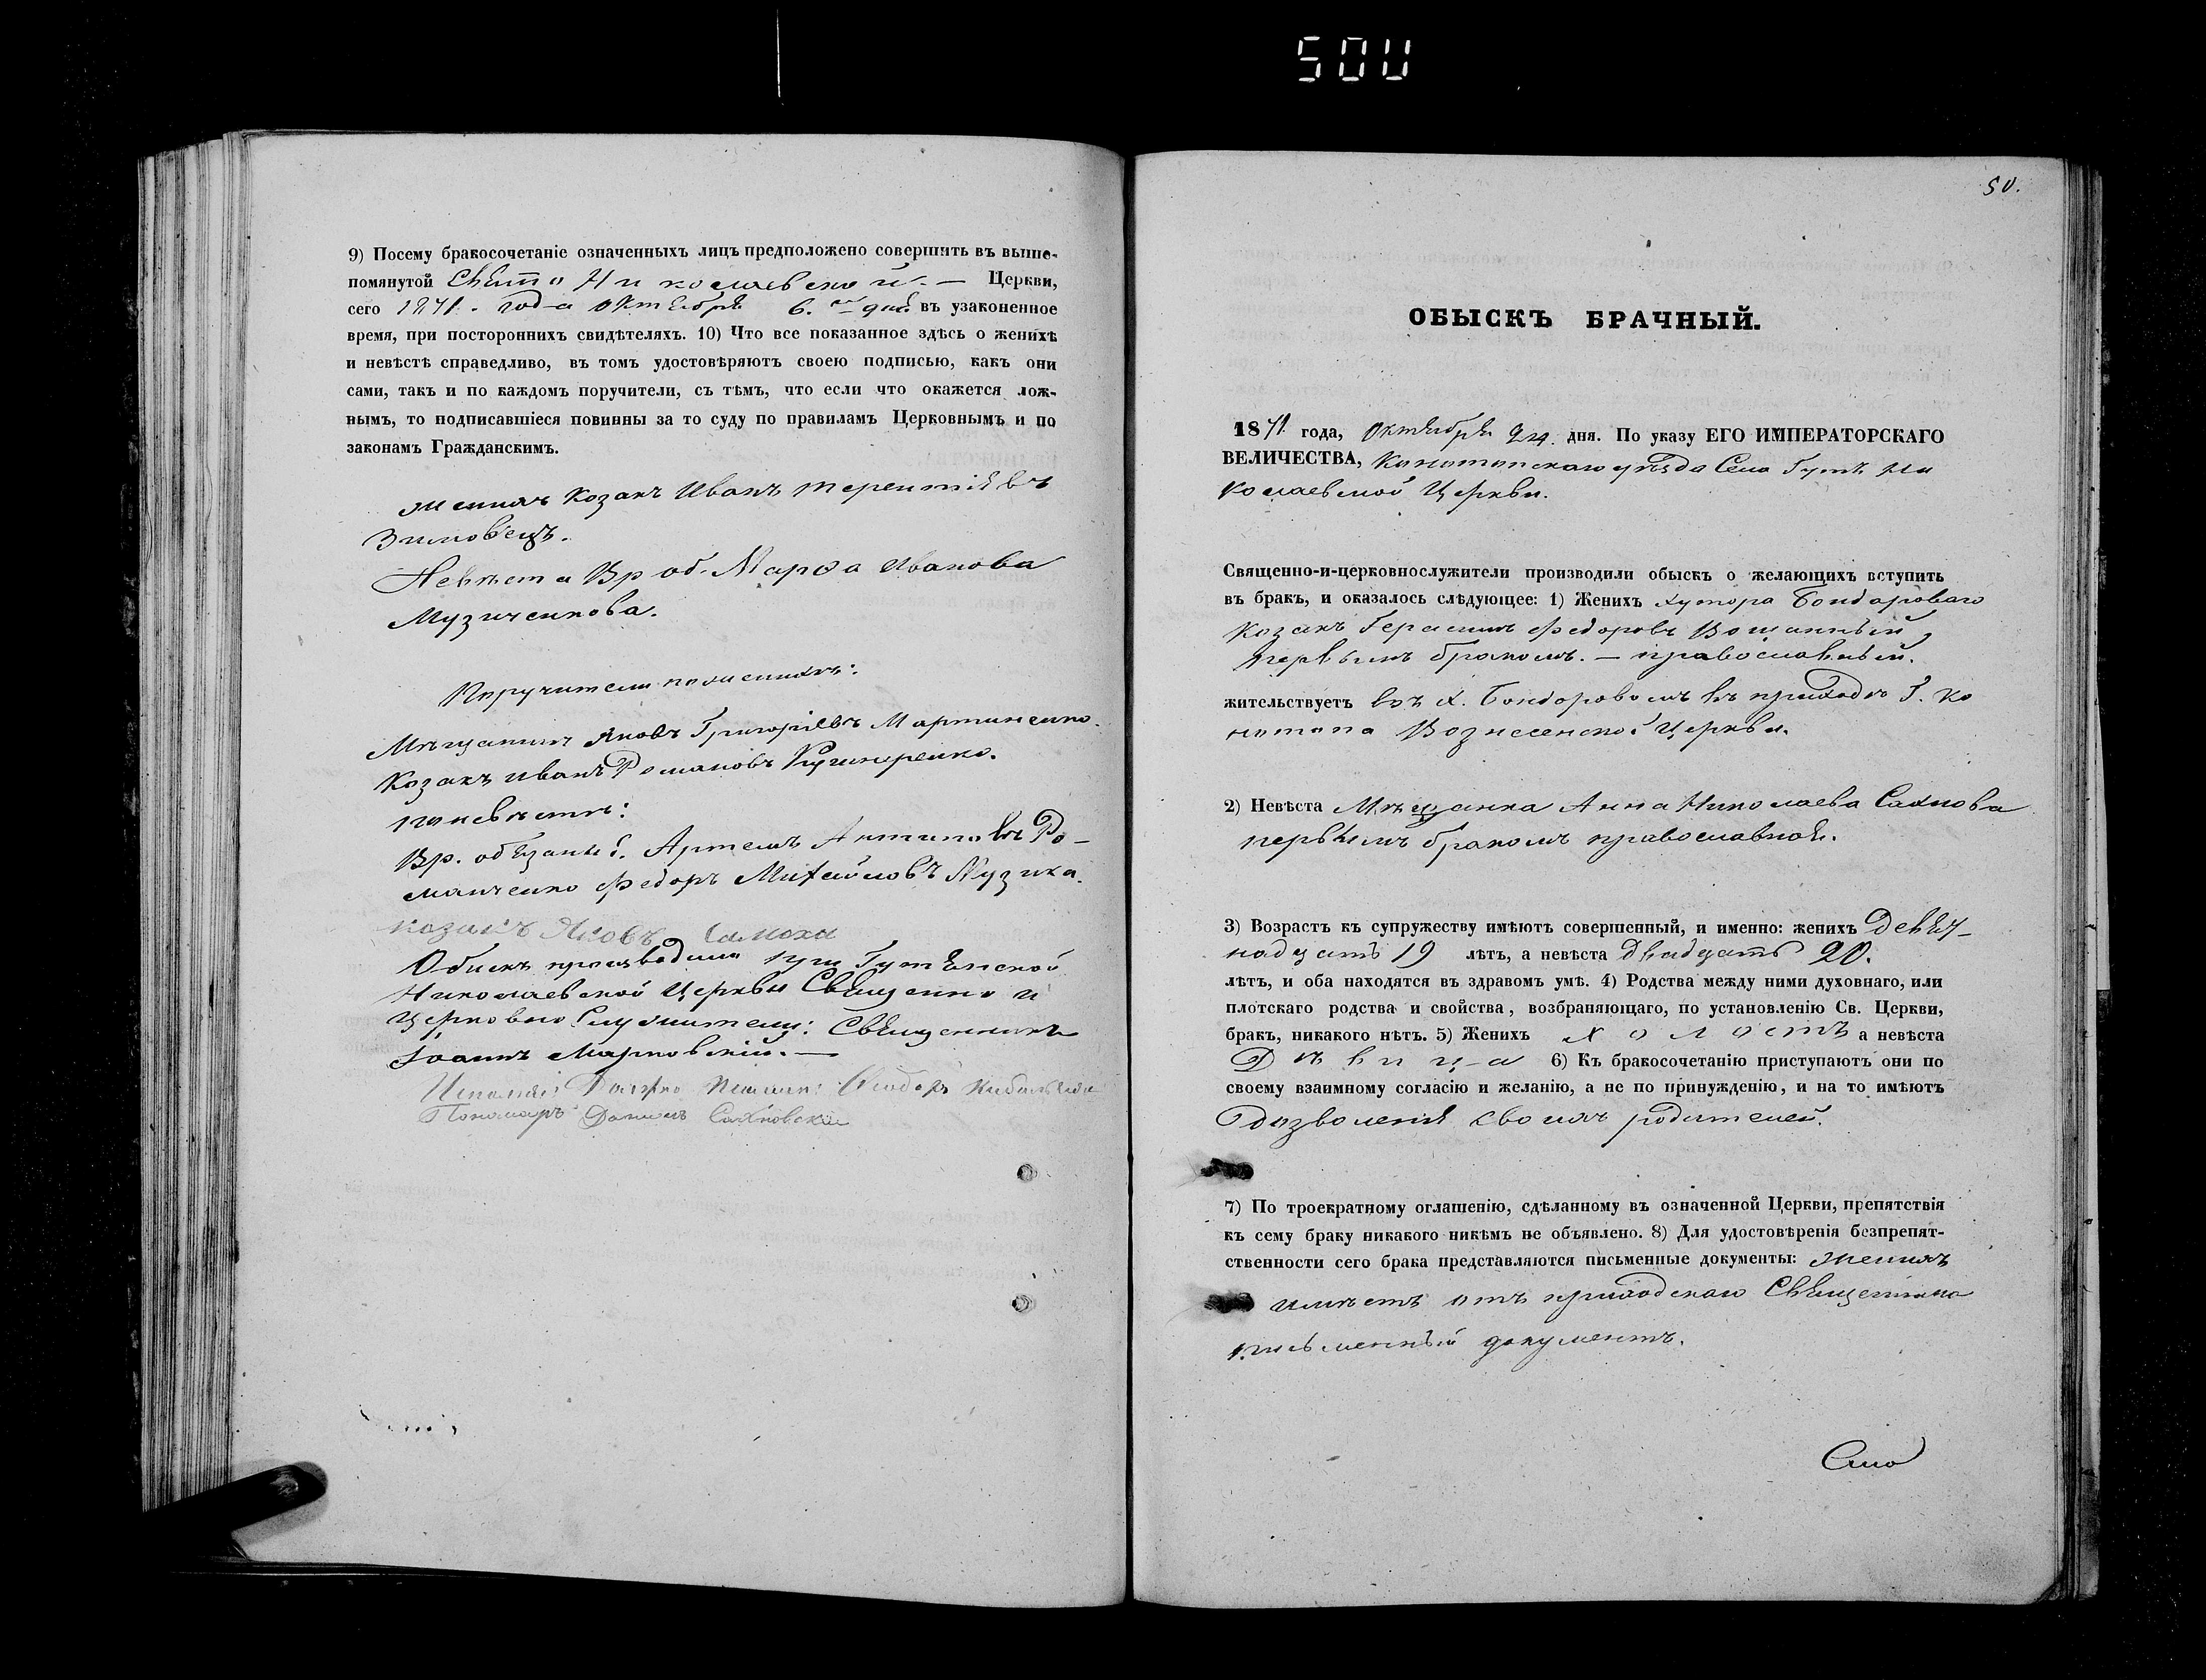 500
9) Посему бракосочетаніе означенныхъ лицъ предположено совершить въ выше-
помянутой Свято Николаевской. — Церкви,
сего 1871. года Октября 6. дня въ узаконенное
время, при постороннихъ свидѣтеляхъ. 10) Что все показанное здѣсь о женихѣ
и невѣстѣ справедливо, въ томъ удостовѣряютъ своею подписью, какъ они
сами, такъ и по каждомъ поручители, съ тѣмъ, что если что окажется лож-
нымъ, то подписавшіеся повинны за то суду по правиламъ Церковнымъ и по
законамъ Гражданскимъ.
женихъ козакъ Иванъ Терентіевъ
Зимовецъ.
Невѣста Вр об. Марѳа Иванова
Музиченкова.
Поручители по женихѣ:
Мѣщанинъ Яковъ Григоріевъ Мартиненко.
Козакъ Иванъ Романовъ
по невѣстѣ:
Вр. обязаный. Артемъ Антиповъ Ро-
манченко Федоръ Михайловъ Музика.
козакъ Яковъ Самоха
Обискъ производили при Гутянской
Николаевской Церкви Священно и
Церковно Служители: Священникъ
Іоаннъ Марковскій. —
Пономаръ Данилъ Сахновскій
50.
ОБЫСКЪ БРАЧНЫЙ.
1871 года, Октября дня. По указу ЕГО ИМПЕРАТОРСКАГО
ВЕЛИЧЕСТВА, Конотопскаго уѣзда Села Гутъ Ни
колаевской Церкви.
Священно-и-церковнослужители производили обыскъ о желающихъ вступить
въ бракъ, и оказалось слѣдующее: 1) Женихъ хутора Бондароваго
козакъ Герасимъ Федоровъ Вощанный,
первымъ бракомъ. — православный.
жительствуетъ въ х. Бондоровомъ въ приходѣ Г. Ко
нотопа Вознесенской Церкви.
2) Невѣста Мѣщанка Анна Николаева Сахнова
первымъ бракомъ православная.
3) Возрастъ къ супружеству имѣютъ совершенный, и именно: женихъ Девят-
надцать 19 лѣтъ, а невѣста Двадцать 20.
лѣтъ, и оба находятся въ здравомъ умѣ. 4) Родства между ними духовнаго, или
плотскаго родства и свойства, возбраняющаго, по установленію Св. Церкви,
бракъ, никакого нѣтъ. 5) Женихъ холостъ а невѣста
Дѣвица 6) Къ бракосочетанію приступаютъ они по
своему взаимному согласію и желанію, а не по принужденію, и на то имѣютъ
дозволенія своихъ родителей.
7) По троекратному оглашенію, сдѣланному въ означенной Церкви, препятствія
къ сему браку никакого никѣмъ не объявлено. 8) Для удостовѣренія безпрепят-
ственности сего брака представляются письменные документы: женихъ
имѣетъ отъ приходскаго Священника
письменный документъ.